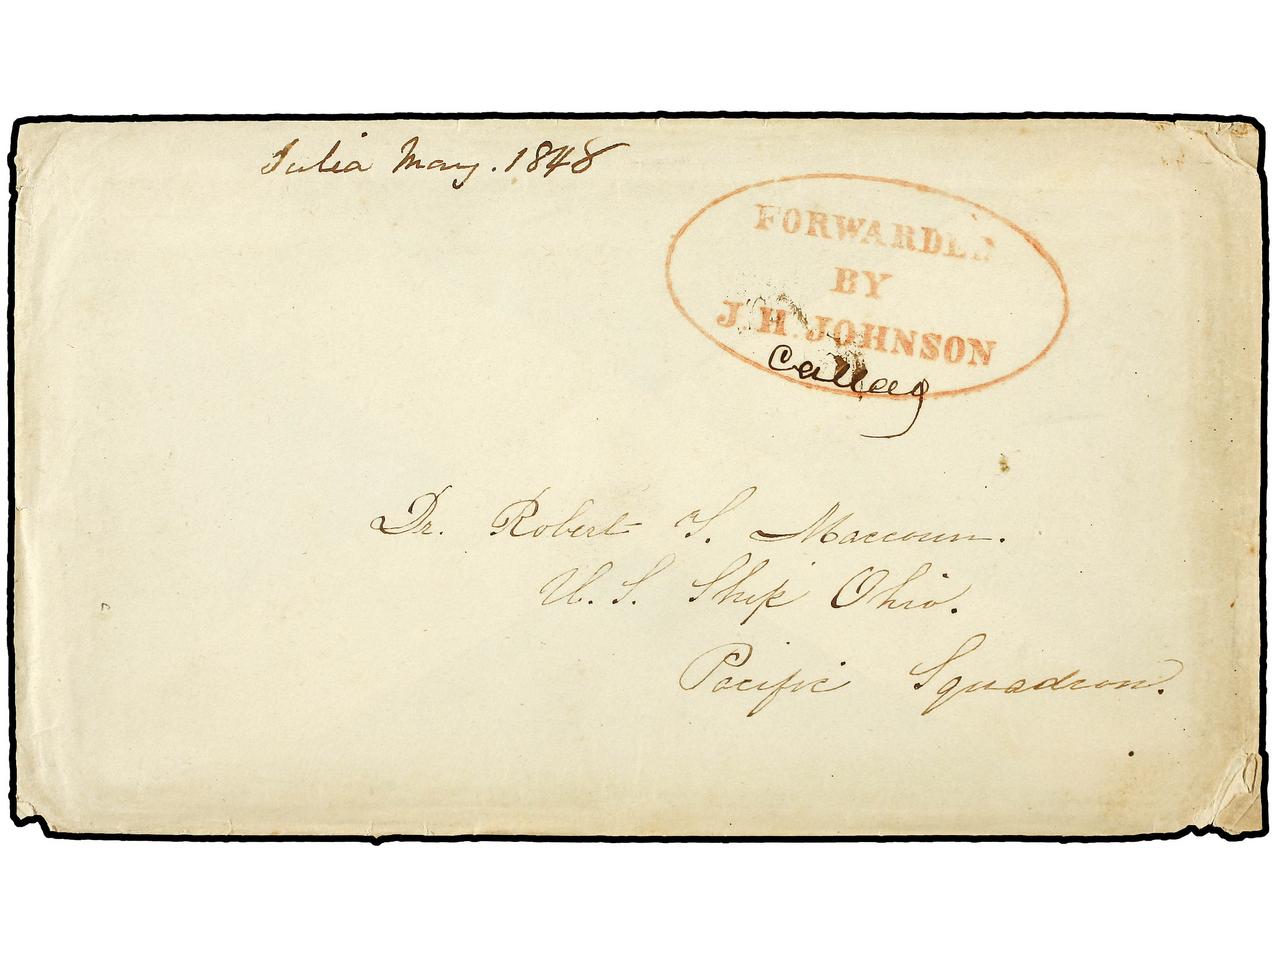 Julia May. 1848
FORWARDED
BY
J.H. JOHNSON
Callao
Dr. Robert T. Maccoun.
U.S. Ship Ohio.
Pacific Squadron.